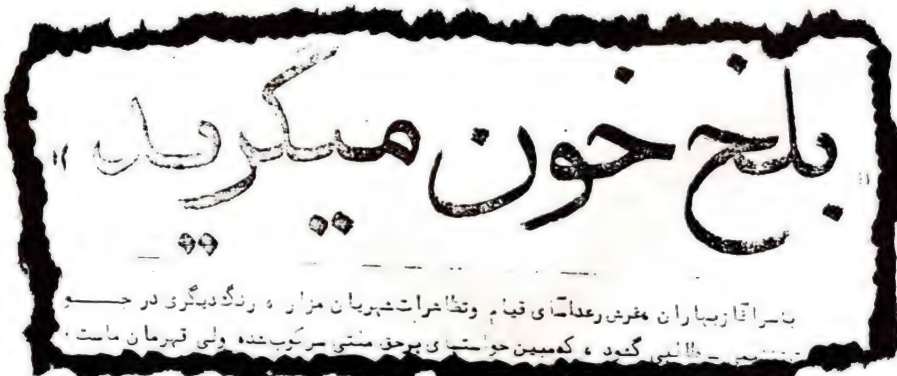 «بلخ خون میگرید»
باسرآغاز بهاران مغرش رعدآسای قیام وتظاهرات شهریان مزار ، رنگ دیگری در جو
طلبی گشود ، که مبین خواستهای برحق ملتی سرکوب شده ولی قهرمان ماست